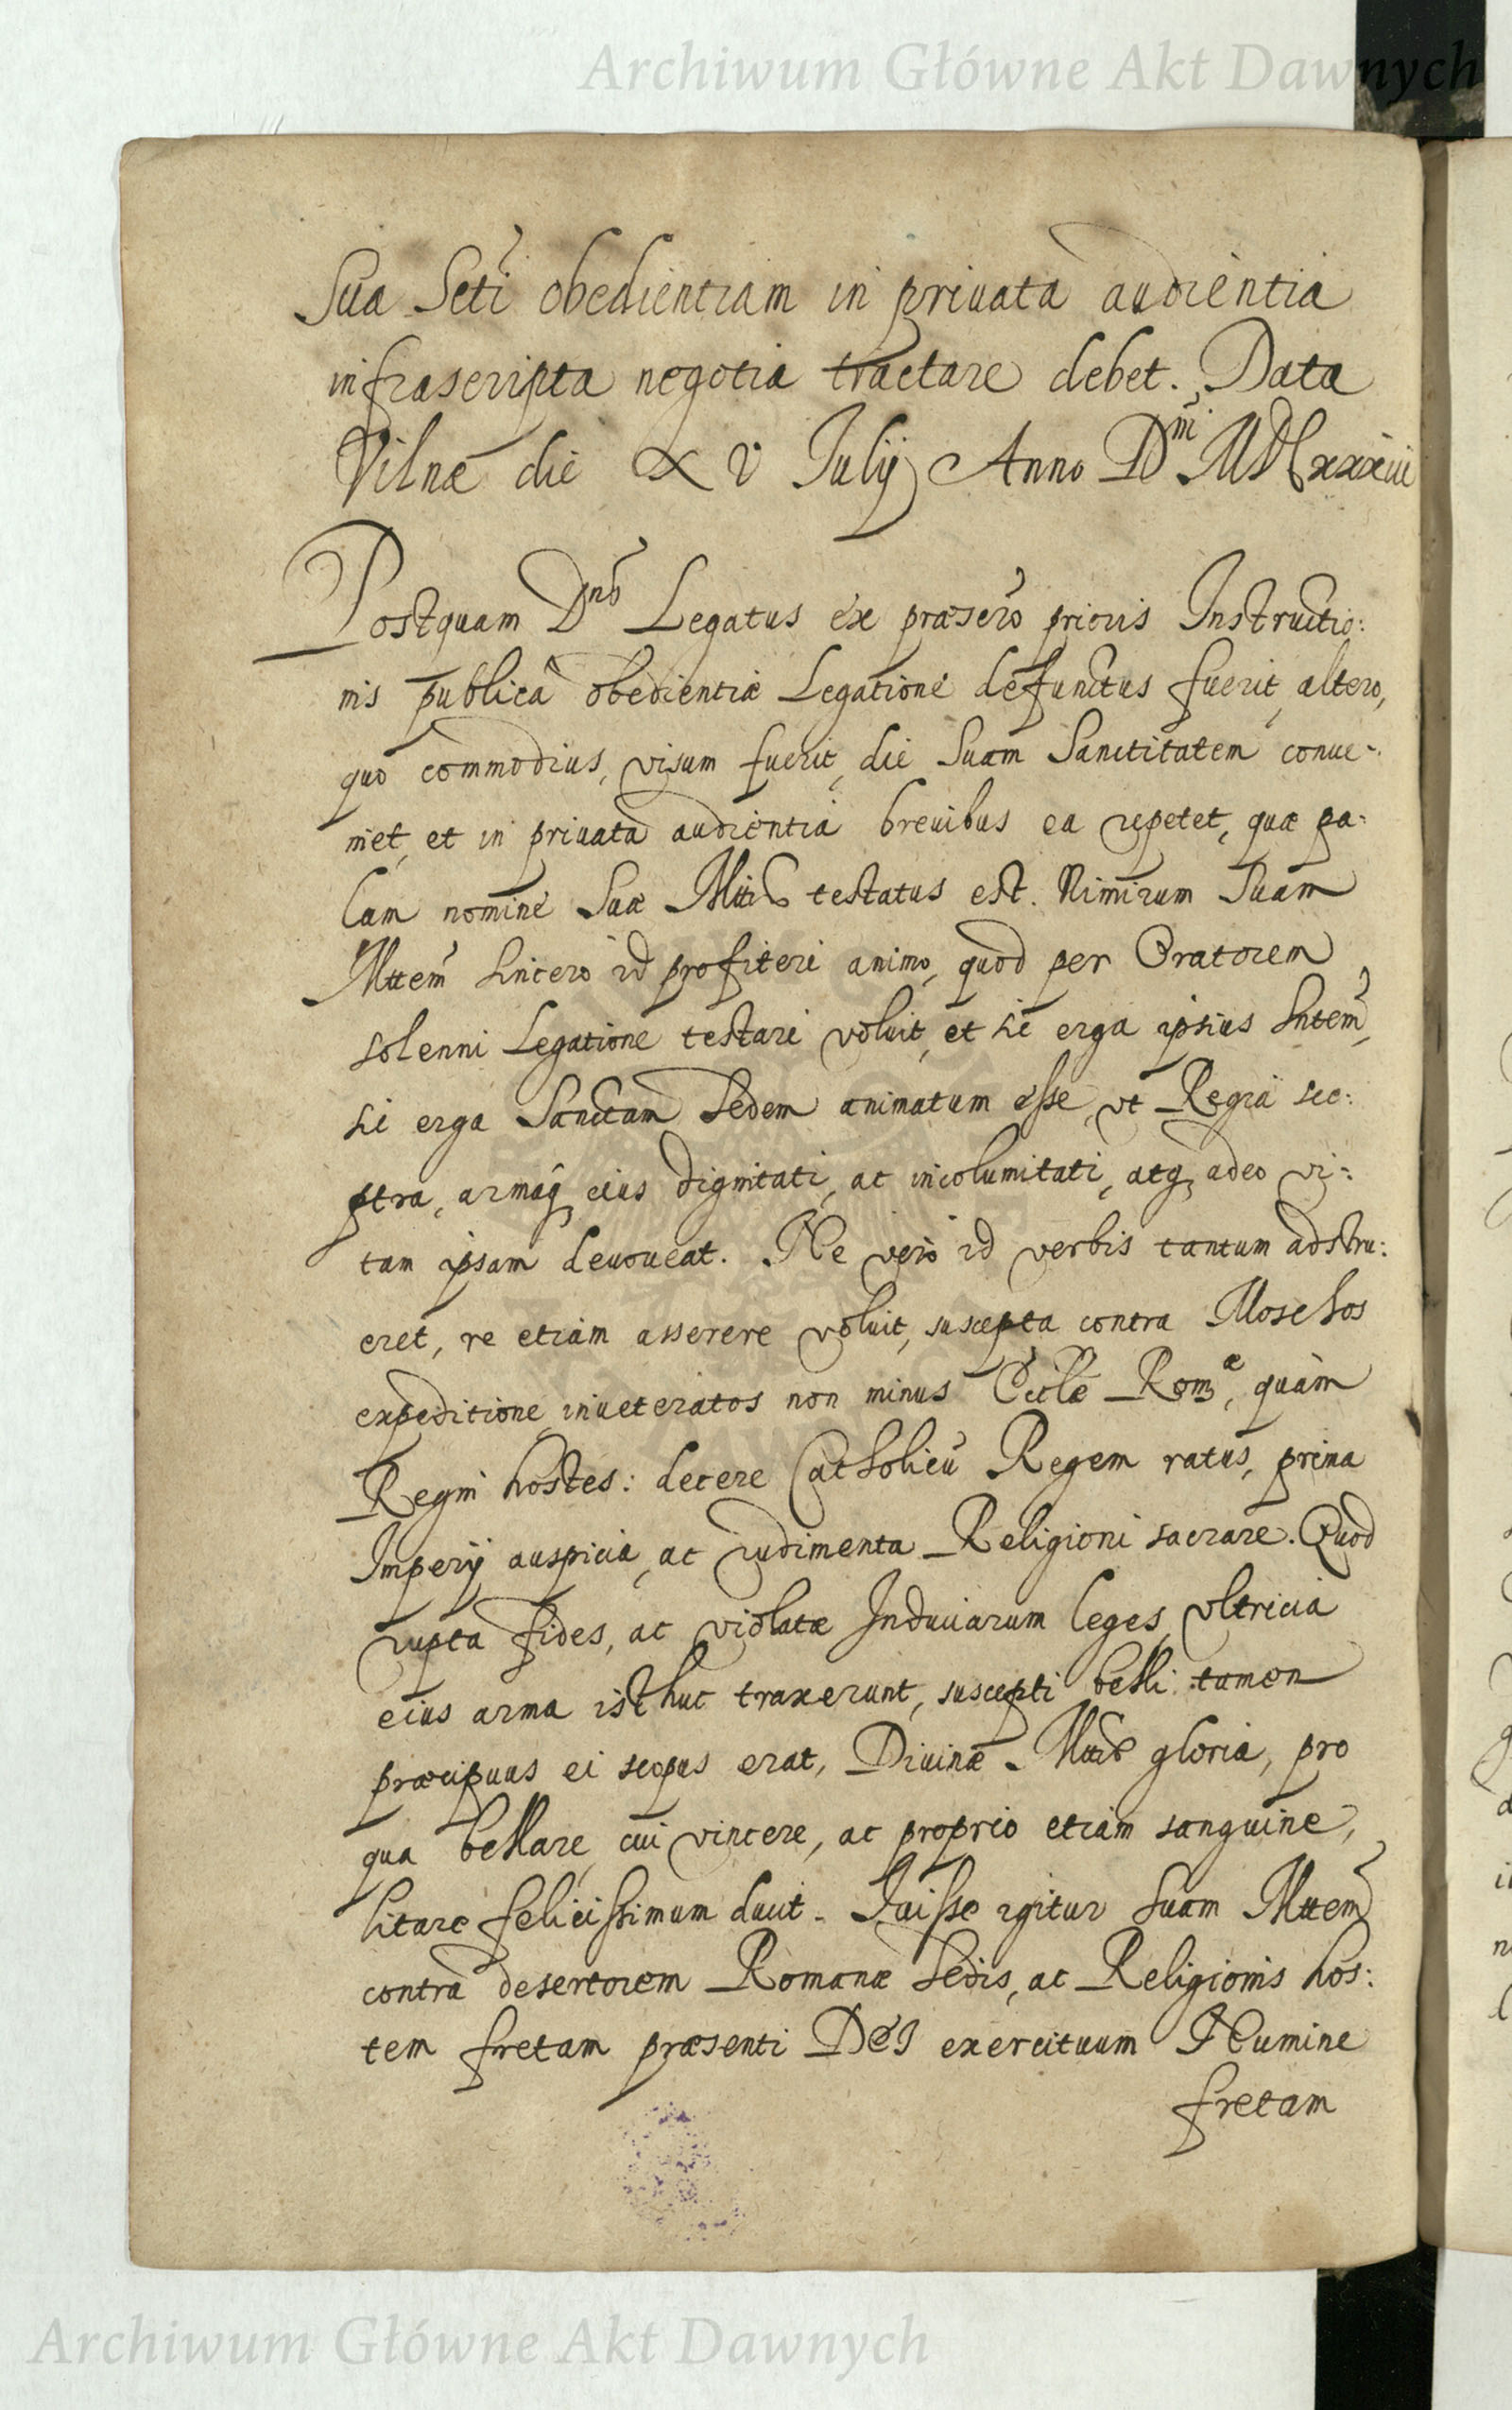 Archiwum Główne Akt Dawnych
Sua Scti obedientiam in priuata audientia
infrascripta negotia tractare debet. Data
Vilnæ die XV Iulij Anno Dni MDCxxxiii
Postquam Dnus Legatus ex præscro prioris Instructio:
nis publicâ obedientiæ Legatione defunctus fuerit, altero,
quo commodius, visum fuerit, die Suam Sanctitatem conue-
niet, et in priuata audientia breuibus ea repetet, quæ pa:
lam nomine Suæ Mttis testatus est. Nimirum Suam
Mttem sincero id profiteri animo, quod per Oratorem
solenni Legatione testari voluit, et sic erga ipsius Sntem,
sic erga Sanctam Sedem animatum esse, vt Regia sce:
ptra, armaq eius dignitati, ac incolumitati, atq adeo vi:
tam ipsam deuoueat. Ne vero id verbis tantum adstru:
eret, re etiam asserere voluit, suscepta contra Moschos
expeditione, inueteratos non minus Ecclæ Romæ, quàm
Regni hostes: decere Catholicū Regem ratus, prima
Imperij auspicia, ac rudimenta Religioni sacrare. Quod
rupta fides, ac violatæ Induciarum leges, vltricia
eius arma isthuc traxerunt, suscepti belli tamen
præcipuus ei scopus erat, Diuinæ Mttis gloria, pro
qua bellare, cui vincere, ac proprio etiam sanguine,
litare felicissimum ducit. Iuisse igitur Suam Mttem
contra desertorem Romanæ Sedis, ac Religionis hos:
tem fretam præsenti DEI exercituum Numine
fretam
Archiwum Główne Akt Dawnych